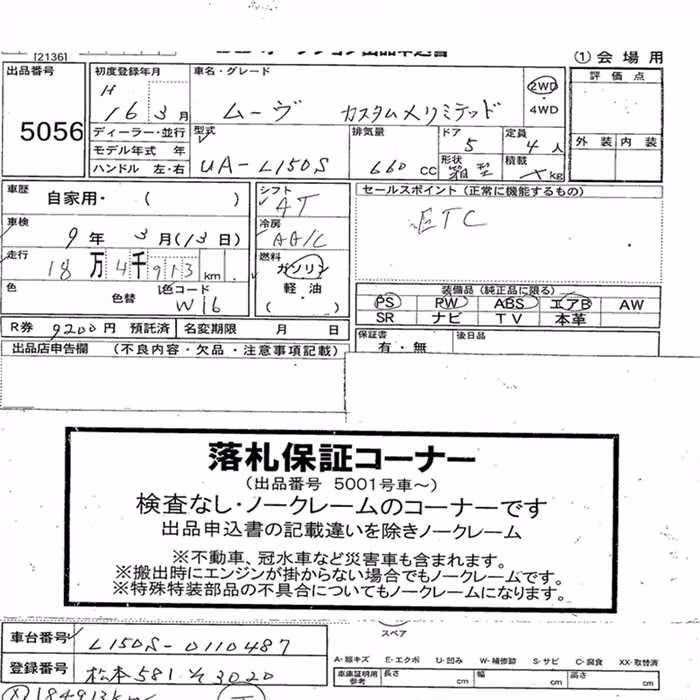 [2136]
① 会場用
出品番号 5056
初度登録年月 H 16 3月
車名・グレード ムーヴ カスタムメリミテッド
2WD ・ 4WD
評価点
外装 内装
ディーラー・並行
モデル年式 年
ハンドル 左・右
型式 UA-L150S
排気量 660 CC
ドア 5
定員 4人
形状 箱型
積載 kg
車歴 自家用・ ( )
シフト AT
セールスポイント (正常に機能するもの)
ETC
車検 9年 3月(13日)
冷房 AA/C
走行 18万4千913km
燃料 ガソリン 軽・油 ( )
色 色替 色コード W16
装備品 (純正品に限る)
PS PW ABS エアB AW
SR ナビ TV 本革
R券 9200円 預託済 名変期限 月 日
保証書 有・無
後日品
出品店申告欄 (不良内容・欠品・注意事項記載)
落札保証コーナー
(出品番号 5001号車~)
検査なし・ノークレームのコーナーです
出品申込書の記載違いを除きノークレーム
※不動車、冠水車など災害車も含まれます。
※搬出時にエンジンが掛からない場合でもノークレームです。
※特殊特装部品の不具合についてもノークレームになります。
スペア
車台番号 L150S-0110487
A-線キズ E-エクボ U-凹み W-補修跡 S-サビ C-腐食 XX-取替済
登録番号 松本581 そ3020
車庫証明用参考 長さ cm 幅 cm 高さ cm
184913km